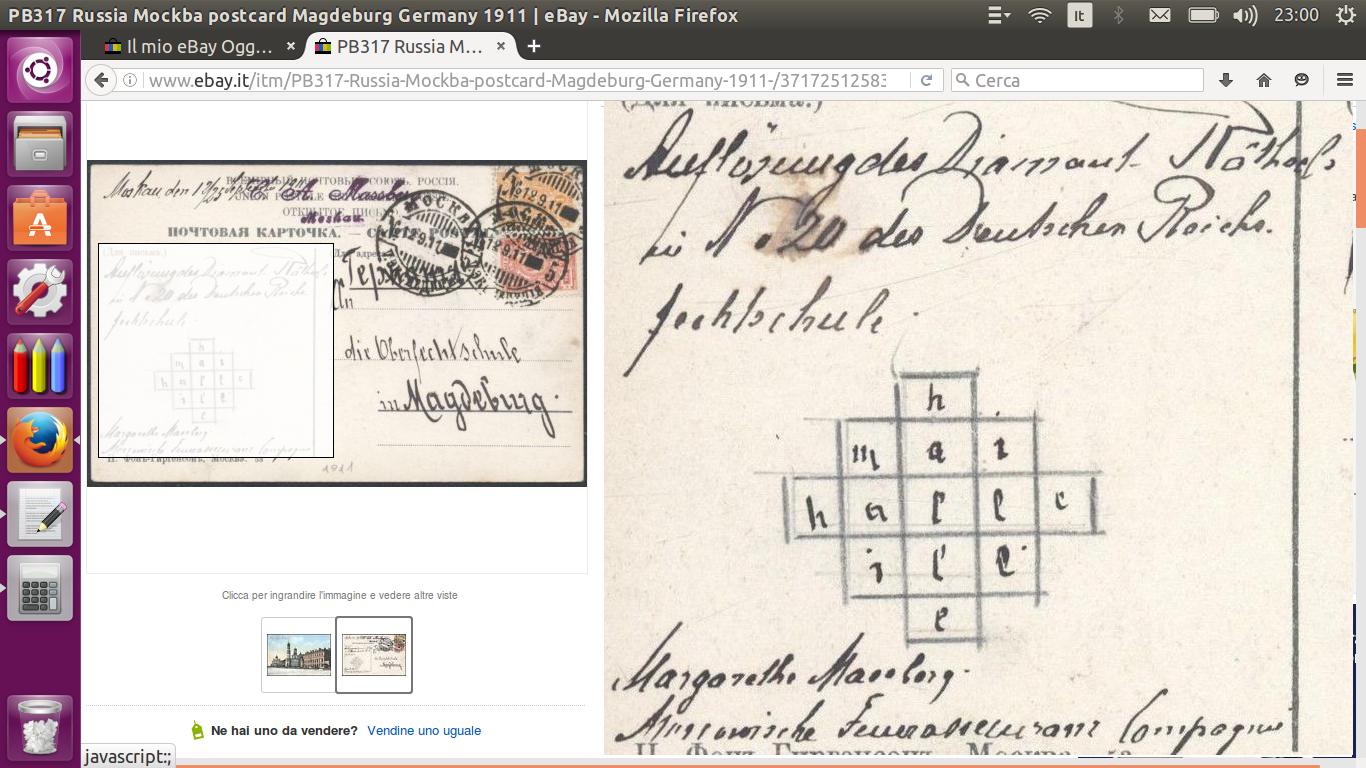 PB317 Russia Mockba postcard Magdeburg Germany 1911 | eBay - Mozilla Firefox
It
23:00
Il mio eBay Ogg…
PB317 Russia M…
www.ebay.it/itm/PB317-Russia-Mockba-postcard-Magdeburg-Germany-1911-/37172512583
Cerca
Moskau den 12/25 September
РОССІЯ.
ОТКРЫТОЕ ПИСЬМО
ПОЧТОВАЯ КАРТОЧКА. —
МОСКВА
An
die Oberfechtschule
in Magdeburg.
1911
(Для письма.)
Auflösung des Diamant Räthsels
in No 20 des Deutschen Reichs.
fechtschule.
h
m a i
h a l l e
i l l
e
Margarethe Massberg.
Compagnie
П. Фонъ-Гиргенсонъ, Москва. 53
Clicca per ingrandire l'immagine e vedere altre viste
Ne hai uno da vendere? Vendine uno uguale
javascript:;